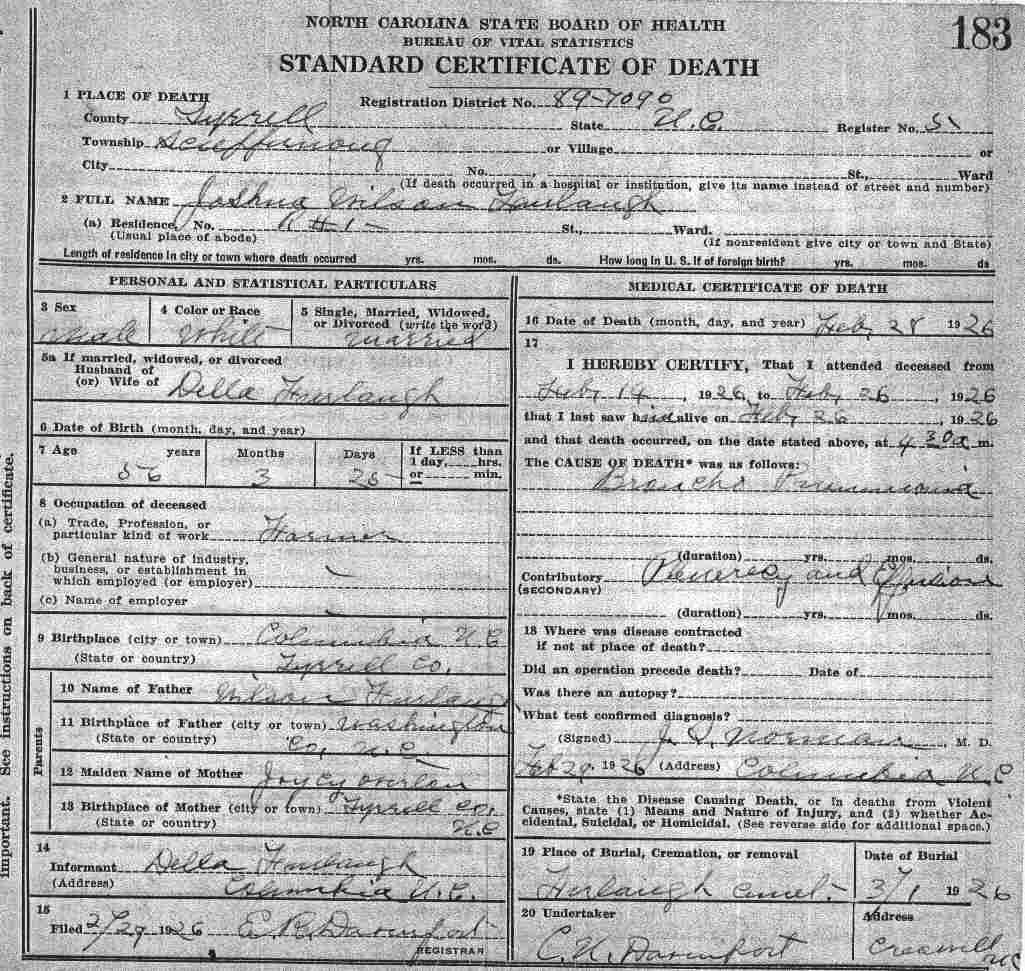 183
NORTH CAROLINA STATE BOARD OF HEALTH
BUREAU OF VITAL STATISTICS
STANDARD CERTIFICATE OF DEATH
1 PLACE OF DEATH Registration District No. 89-7090
County Tyrrell State N.C. Register No. 51
Township or Village or
City No. , St., Ward
(If death occurred in a hospital or institution, give its name instead of street and number)
2 FULL NAME Joshua Wilson Furlaugh
(a) Residence, No. R #1 St., Ward.
(Usual place of abode) (If nonresident give city or town and State)
Length of residence in city or town where death occurred yrs. mos. ds. How long in U. S. if of foreign birth? yrs. mos. ds
PERSONAL AND STATISTICAL PARTICULARS
3 Sex 4 Color or Race 5 Single, Married, Widowed,
or Divorced (write the word)
Male White Married
5a If married, widowed, or divorced
Husband of
(or) Wife of Della Furlaugh
6 Date of Birth (month, day, and year)
7 Age years Months Days If LESS than
1 day, hrs.
56 3 or min.
8 Occupation of deceased
(a) Trade, Profession, or
particular kind of work Farmer
(b) General nature of industry,
business, or establishment in
which employed (or employer)
(c) Name of employer
9 Birthplace (city or town) Columbia N.C
(State or country) Tyrrell Co.
Parents
10 Name of Father Wilson Furlaugh
11 Birthplace of Father (city or town) Washington
(State or country) Co, N.C.
12 Maiden Name of Mother
13 Birthplace of Mother (city or town) Tyrrell Co,
(State or country) N.C
14
Informant Della Furlaugh
(Address) Columbia N.C.
15
Filed 2/29 1926 E. R. Davenport
REGISTRAR
MEDICAL CERTIFICATE OF DEATH
16 Date of Death (month, day, and year) Feb, 28 1926
17
I HEREBY CERTIFY, That I attended deceased from
Feb, 14, 1926, to Feb, 26, 1926
that I last saw him alive on Feb, 26, 1926
and that death occurred, on the date stated above, at 4 30a m.
The CAUSE OF DEATH* was as follows:
Broncho Pneumonia
(duration) yrs. mos. ds.
Contributory and Effusion
(SECONDARY)
(duration) yrs. mos. ds.
18 Where was disease contracted
if not at place of death?
Did an operation precede death? Date of
Was there an autopsy?
What test confirmed diagnosis?
(Signed) Norman, M. D.
1926 (Address) Columbia N.C
*State the Disease Causing Death, or in deaths from Violent
Causes, state (1) Means and Nature of Injury, and (2) whether Ac-
cidental, Suicidal, or Homicidal. (See reverse side for additional space.)
19 Place of Burial, Cremation, or removal Date of Burial
Furlaugh cemet- 3/1 1926
20 Undertaker Address
C. N. Davenport Creswell
NC
Important. See instructions on back of certificate.